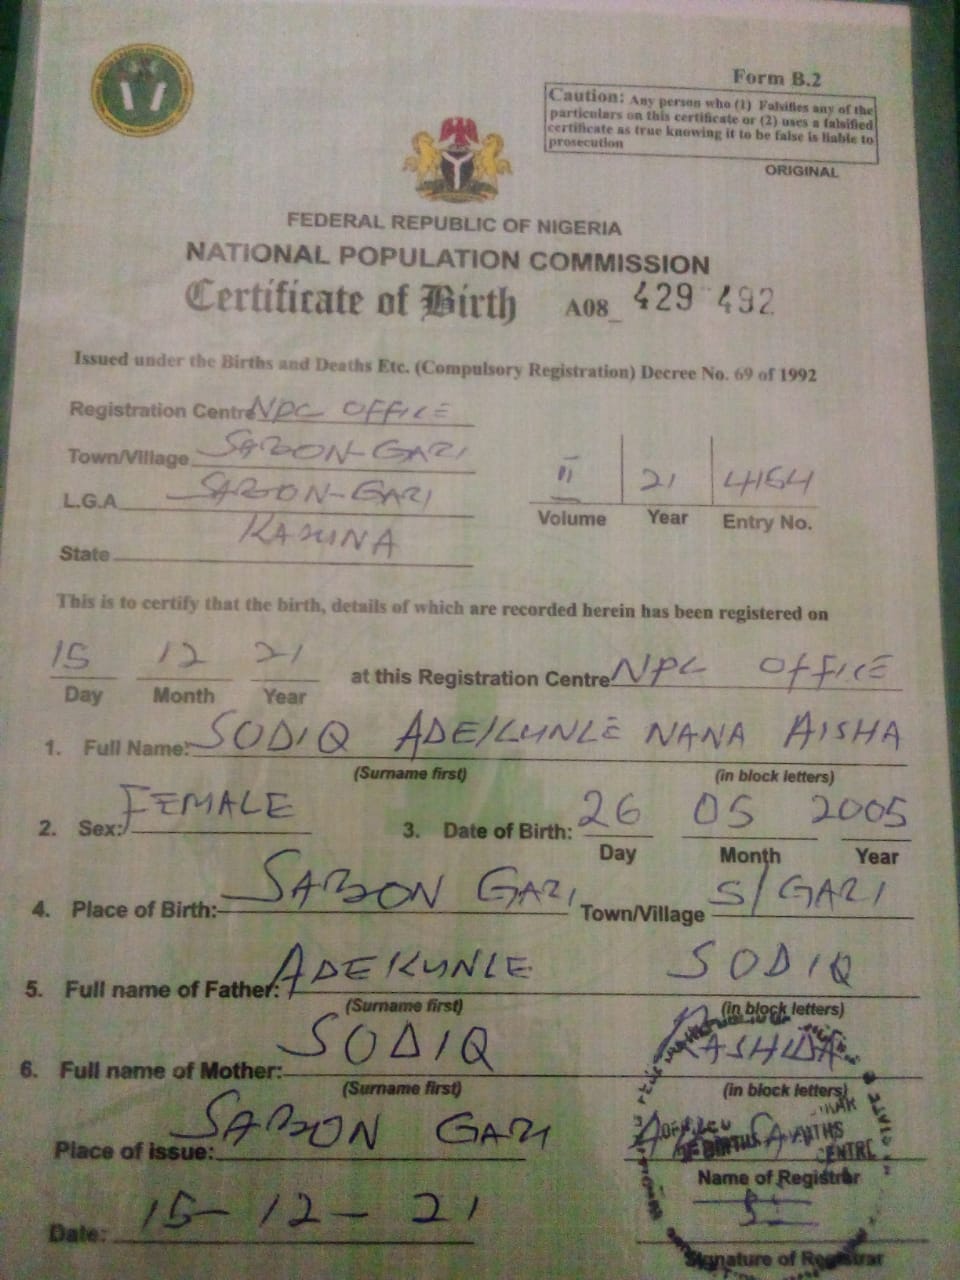 Form B.2
Caution: Any person who (1) Falsifies any of the
particulars on this certificate or (2) uses a falsified
certificate as true knowing it to be false is liable to
prosecution
ORIGINAL
FEDERAL REPUBLIC OF NIGERIA
NATIONAL POPULATION COMMISSION
Certificate of Birth A08_ 429 492
Issued under the Births and Deaths Etc. (Compulsory Registration) Decree No. 69 of 1992
Registration Centre NPC OFFICE
Town/Village SABON-GARI
L.G.A SABON-GARI
State KADUNA
II 21 4154
Volume Year Entry No.
This is to certify that the birth, details of which are recorded herein has been registered on
15 12 21 at this Registration Centre NPC OFFICE
Day Month Year
1. Full Name: SODIQ ADEKUNLE NANA AISHA
(Surname first) (in block letters)
2. Sex: FEMALE 3. Date of Birth: 26 05 2005
Day Month Year
4. Place of Birth: SABON GARI Town/Village S/GARI
5. Full name of Father: ADEKUNLE SODIQ
(Surname first) (in block letters)
6. Full name of Mother: SODIQ RASHIDA
(Surname first) (in block letters)
Place of issue: SABON GARI
Name of Registrar
Date: 15-12-21
Signature of Registrar